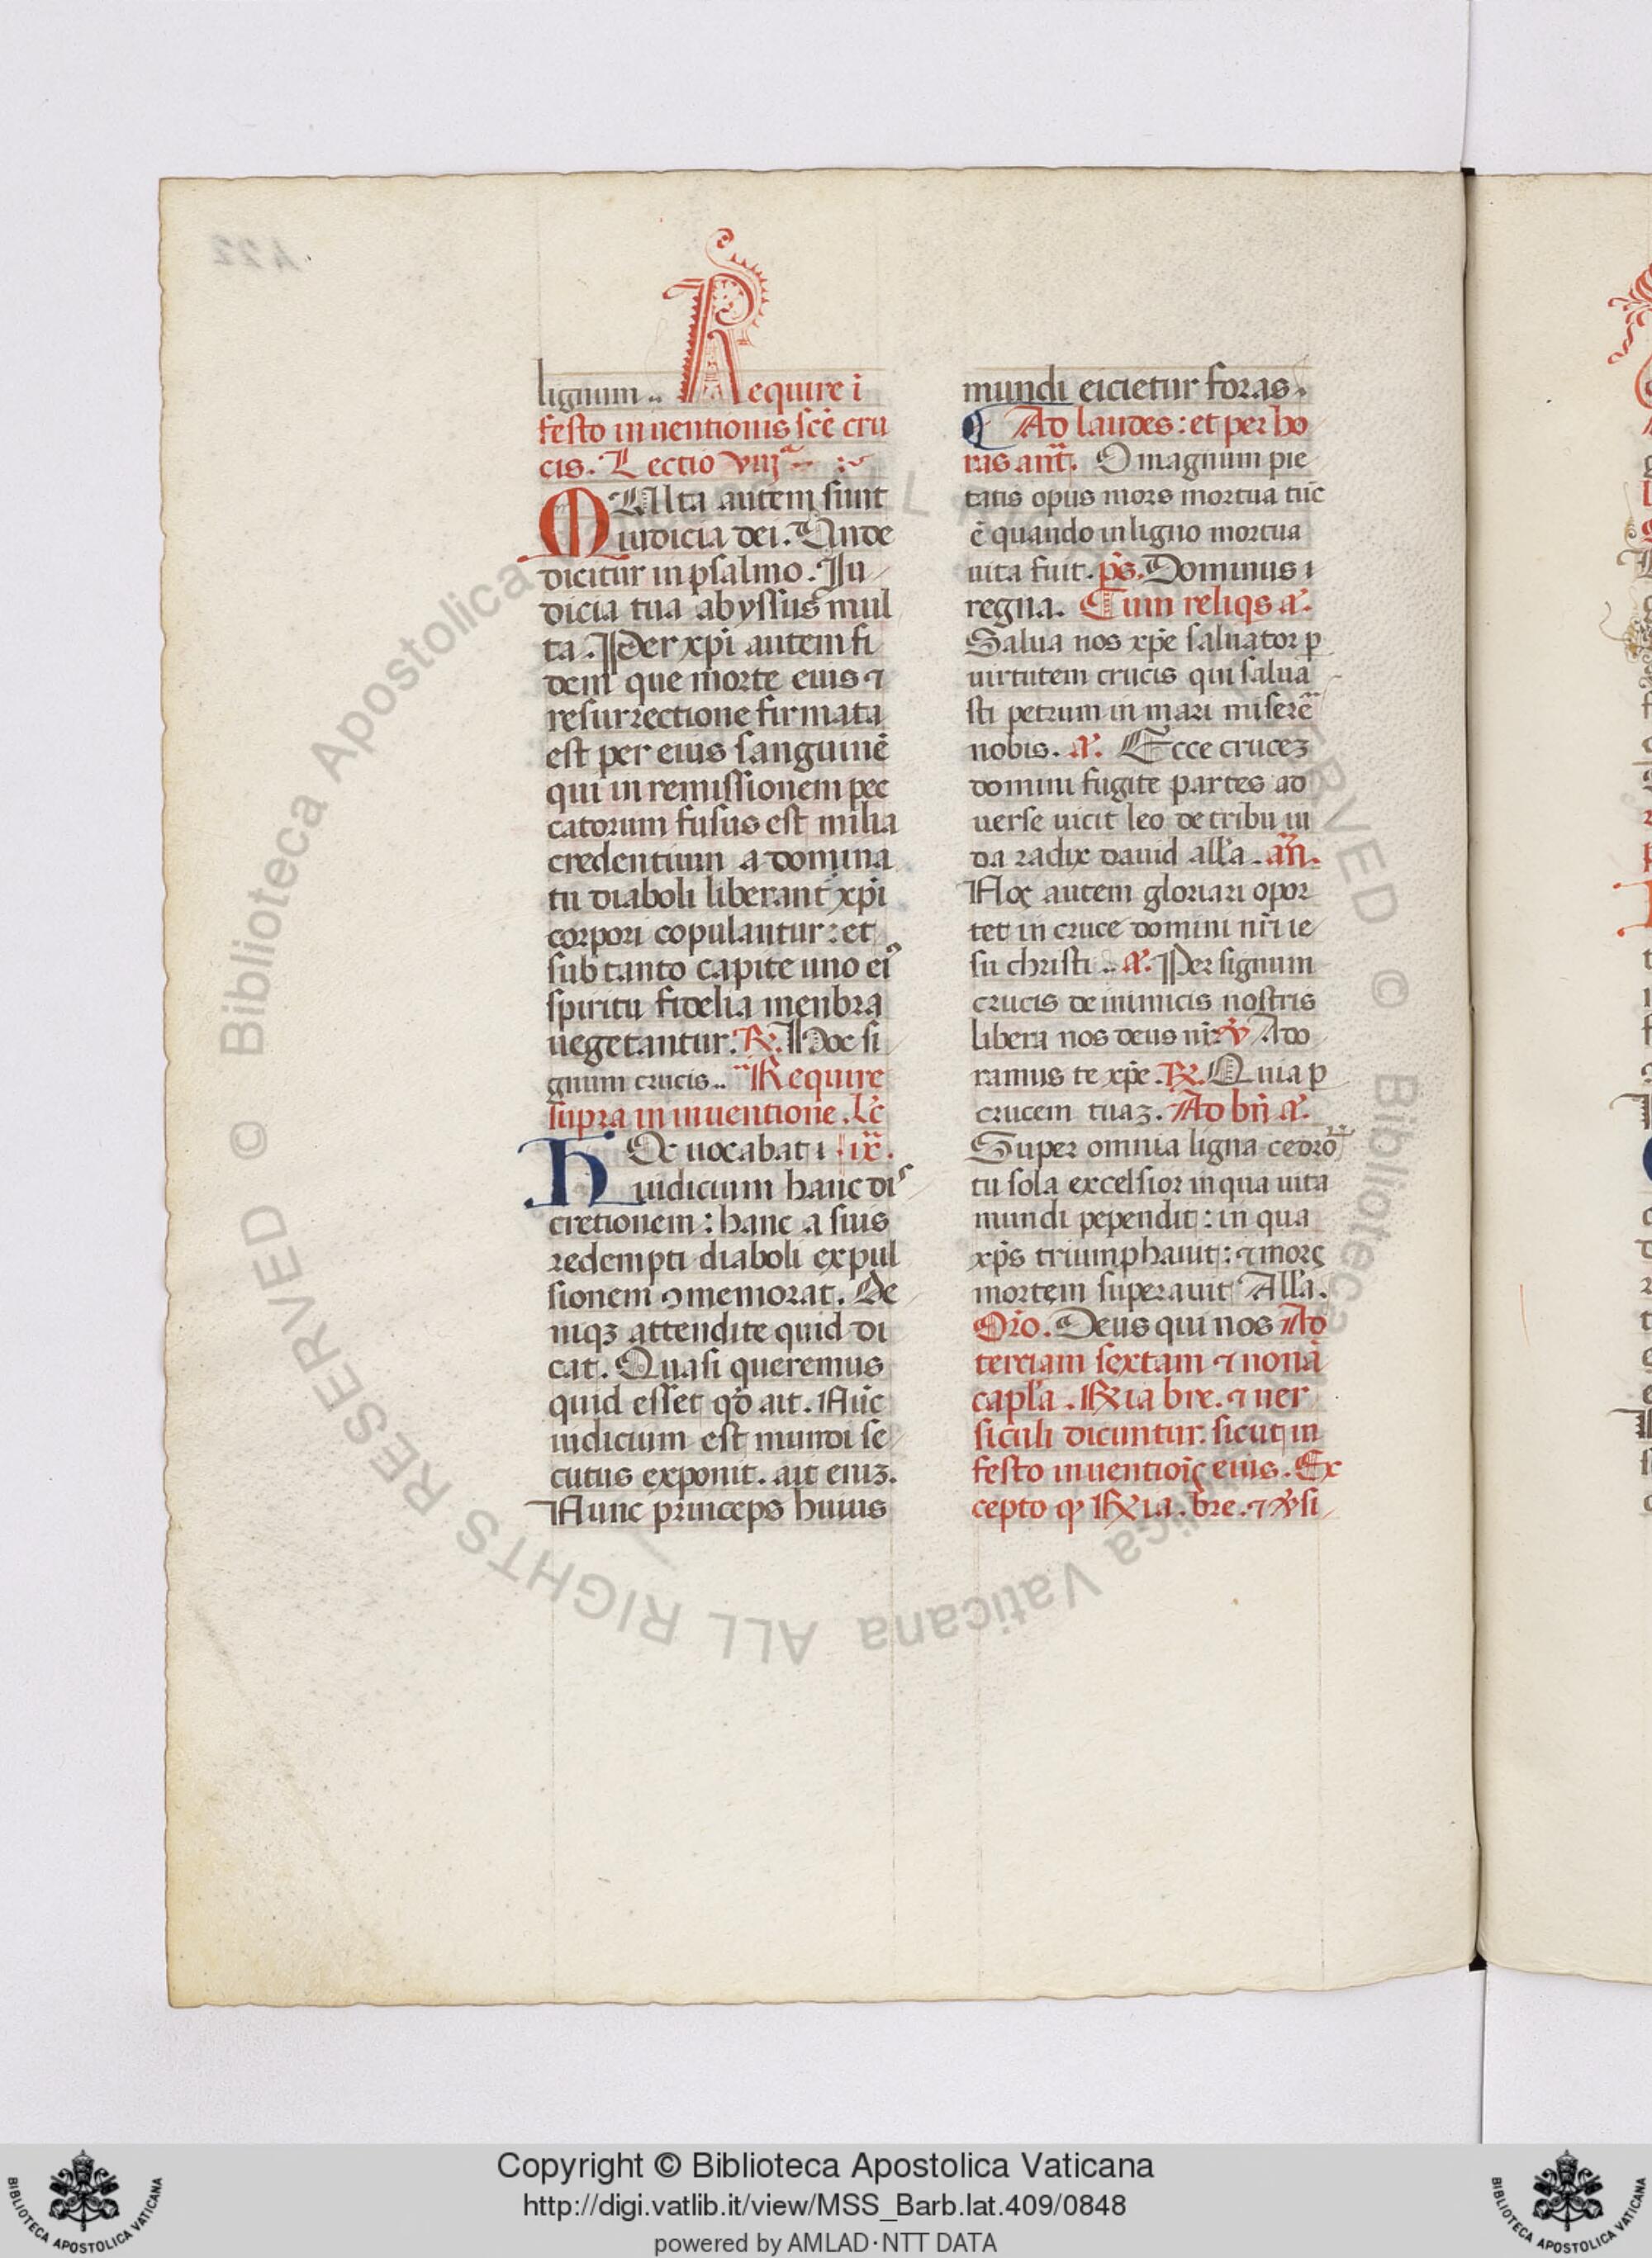 lignum .. Require ĩ
festo in uentionis sc̃e cru
cis. Lectio viijͣ
MUlta autem sunt
iudicia dei. Unde
dicitur in psalmo. Iu
dicia tua abyssus mul
ta. Per xp̃i autem fi
dem que morte eius ⁊
resurrectione firmata
est per eius sanguinẽ
qui in remissionem pec
catorum fusus est milia
credentium a domina
tu diaboli liberant̃ xp̃i
corpori copulantur: et
sub tanto capite uno eiꝰ
spiritu fidelia menbra
uegetantur. ℟. Hoc si
gnum crucis .. Require
supra in inuentione. Lc̃
HOc uocabat i ix̃.
iudicium hanc diˢ
cretionem: hanc a suis
redempti diaboli expul
sionem ꝯmemorat. De
niqꝫ attendite quid di
cat. Quasi queremus
quid esset qð ait. Nũc
iudicium est mundi se
cutus exponit. ait enīꝫ.
Nunc princeps huius
mundi eicietur foras.
Ad laudes: et per ho
ras añt. O magnum pie
tatis opus mors mortua tũc
ẽ quando in ligno mortua
uita fuit. p̃s. Dominus ı
regna. Cum reliqs a᷑.
Salua nos xp̃e saluator p
uirtutem crucis qui salua
sti petrum in mari miserẽ
nobis. a᷑. Ecce cruceꝫ
domini fugite partes ad
uerse uicit leo de tribu iu
da radix dauid all̃a. añ.
Nos autem gloriari opor
tet in cruce domini nr̃i ie
su christi .. a᷑. Per signum
crucis de inimicis nostris
libera nos deus nr̃ ℣ Ado
ramus te xp̃e. ℟. Quia p
crucem tuaꝫ. Ad bñ a᷑.
Super omnia ligna cedrõ
tu sola excelsior in qua uita
mundi pependit: in qua
xp̃s triumphauit: ⁊ mors
mortem superauit All̃a.
Orõ. Deus qui nos Ad
terciam sextam ⁊ nonã
capl̃a. ℟ia bre. ⁊ uer
siculi dicuntur. sicut in
festo inuentiõis eius. Ex
cepto qꝫ ℟ia. bre. ⁊ ℣si
Copyright © Biblioteca Apostolica Vaticana
http://digi.vatlib.it/view/MSS_Barb.lat.409/0848
powered by AMLAD·NTT DATA